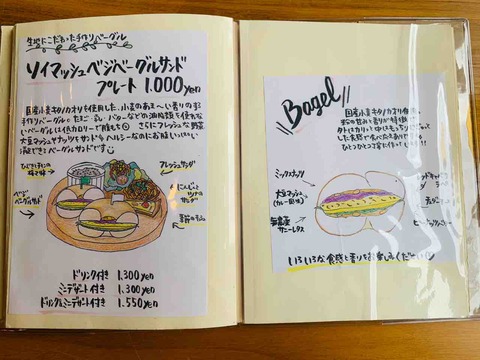 生地にこだわった手作りベーグル
ソイマッシュベジベーグルサンド
プレート 1.000yen
国産小麦キタノカオリを使用した、小麦のあま〜い香りの
手作りベーグル。たまご・乳・バターなどの油脂類を使用しな
いベーグルは低カロリーで腹もち◎ さらにフレッシュな野菜
大豆マッシュナッツをサンドしヘルシーなのにお腹いっぱい
満足できるベーグルサンドです
フレッシュサラダ
にんじんと
ベジ
ベーグルサンド
季節の
ドリンク付き 1.300yen
ミニデザート付き 1.300yen
ドリンク&ミニデザート付き 1.550yen
Bagel
国産小麦キタノカオリ
甘みと香りが特徴
外はカリッと中はもっちり
した食感で食べごたえあり
ひとつひとつ丁寧に
ミックスナッツ
大豆マッシュ
(カレー風味)
サニーレタス
いろいろな食感と香りをお楽しみください